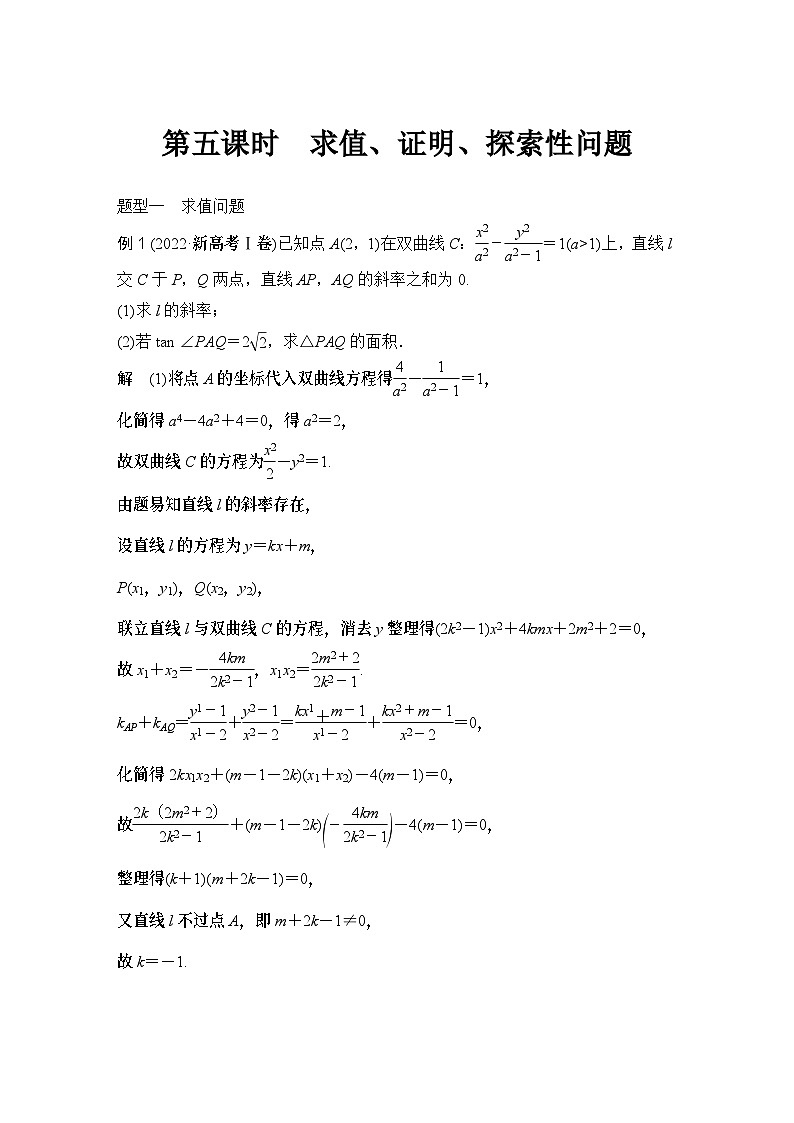 第五课时　求值、证明、探索性问题
题型一　求值问题
例 1 (2022·新高考Ⅰ卷)已知点 A(2，1)在双曲线 C：x2/a2－y2/(a2－1)＝1(a>1)上，直线 l
交 C 于 P，Q 两点，直线 AP，AQ 的斜率之和为 0.
(1)求 l 的斜率；
(2)若 tan ∠PAQ＝2√2，求△PAQ 的面积．
解　(1)将点 A 的坐标代入双曲线方程得4/a2－1/(a2－1)＝1，
化简得 a4－4a2＋4＝0，得 a2＝2，
故双曲线 C 的方程为x2/2－y2＝1.
由题易知直线 l 的斜率存在，
设直线 l 的方程为 y＝kx＋m，
P(x1，y1)，Q(x2，y2)，
联立直线 l 与双曲线 C 的方程，消去 y 整理得(2k2－1)x2＋4kmx＋2m2＋2＝0，
故 x1＋x2＝－4km/(2k2－1)，x1x2＝(2m2＋2)/(2k2－1).
kAP＋kAQ＝(y1－1)/(x1－2)＋(y2－1)/(x2－2)＝(kx1＋m－1)/(x1－2)＋(kx2＋m－1)/(x2－2)＝0，
化简得 2kx1x2＋(m－1－2k)(x1＋x2)－4(m－1)＝0，
故2k（2m2＋2）/(2k2－1)＋(m－1－2k)(－4km/(2k2－1))－4(m－1)＝0，
整理得(k＋1)(m＋2k－1)＝0，
又直线 l 不过点 A，即 m＋2k－1≠0，
故 k＝－1.